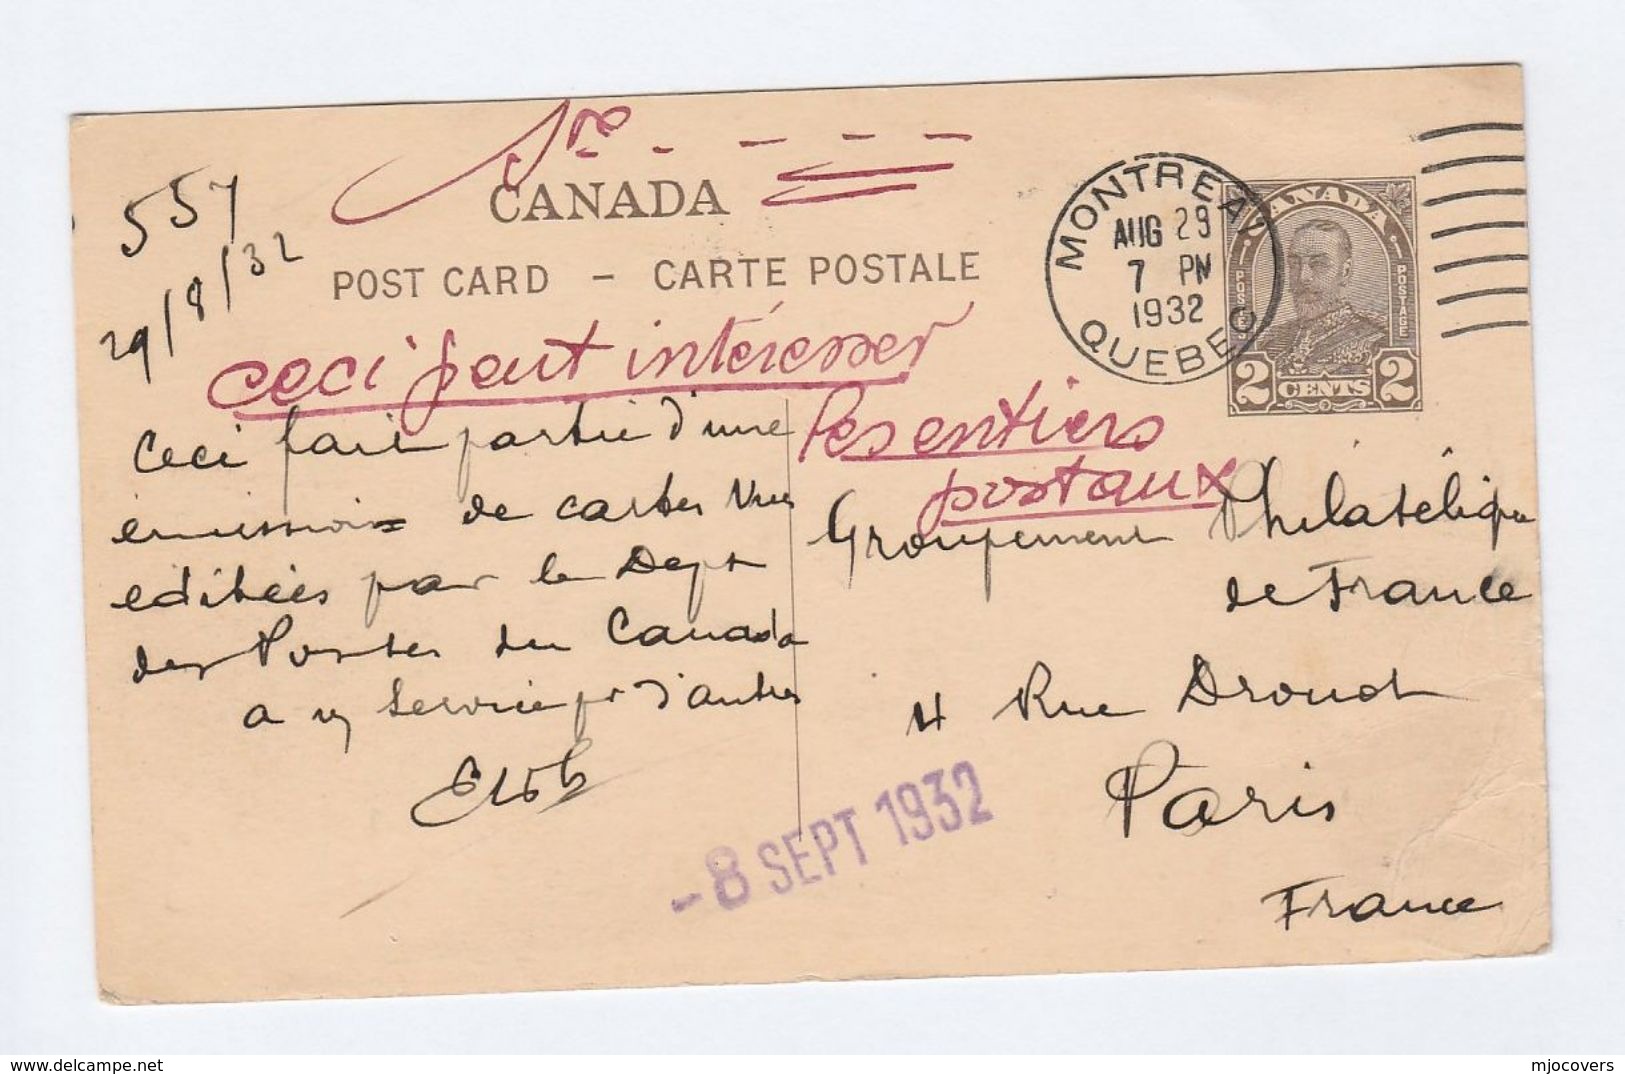 557
29/8/32
CANADA
POST CARD – CARTE POSTALE
MONTREAL
AUG 29
7 PM
1932
QUEBEC
CANADA
POSTES
POSTAGE
2 CENTS 2
ceci peut intéresser
les entiers
postaux
Ceci fait partie d'une
émission de cartes vues
editées par le Dept
des Postes du Canada
a
service pr d'autres
Groupement Philatélique
de France
4 Rue Drouot
Paris
France
-8 SEPT 1932
mjocovers